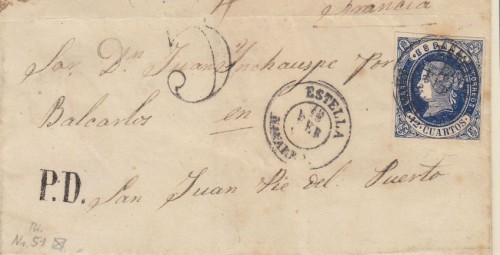 Francia
Sor. Dn Juan Inchauspe Por
Balcarlos en
San Juan Pie del Puerto
P.D.
ESTELLA
18
FEB
NAVARRA
CORREOS
12 CUARTOS
Nr. 51